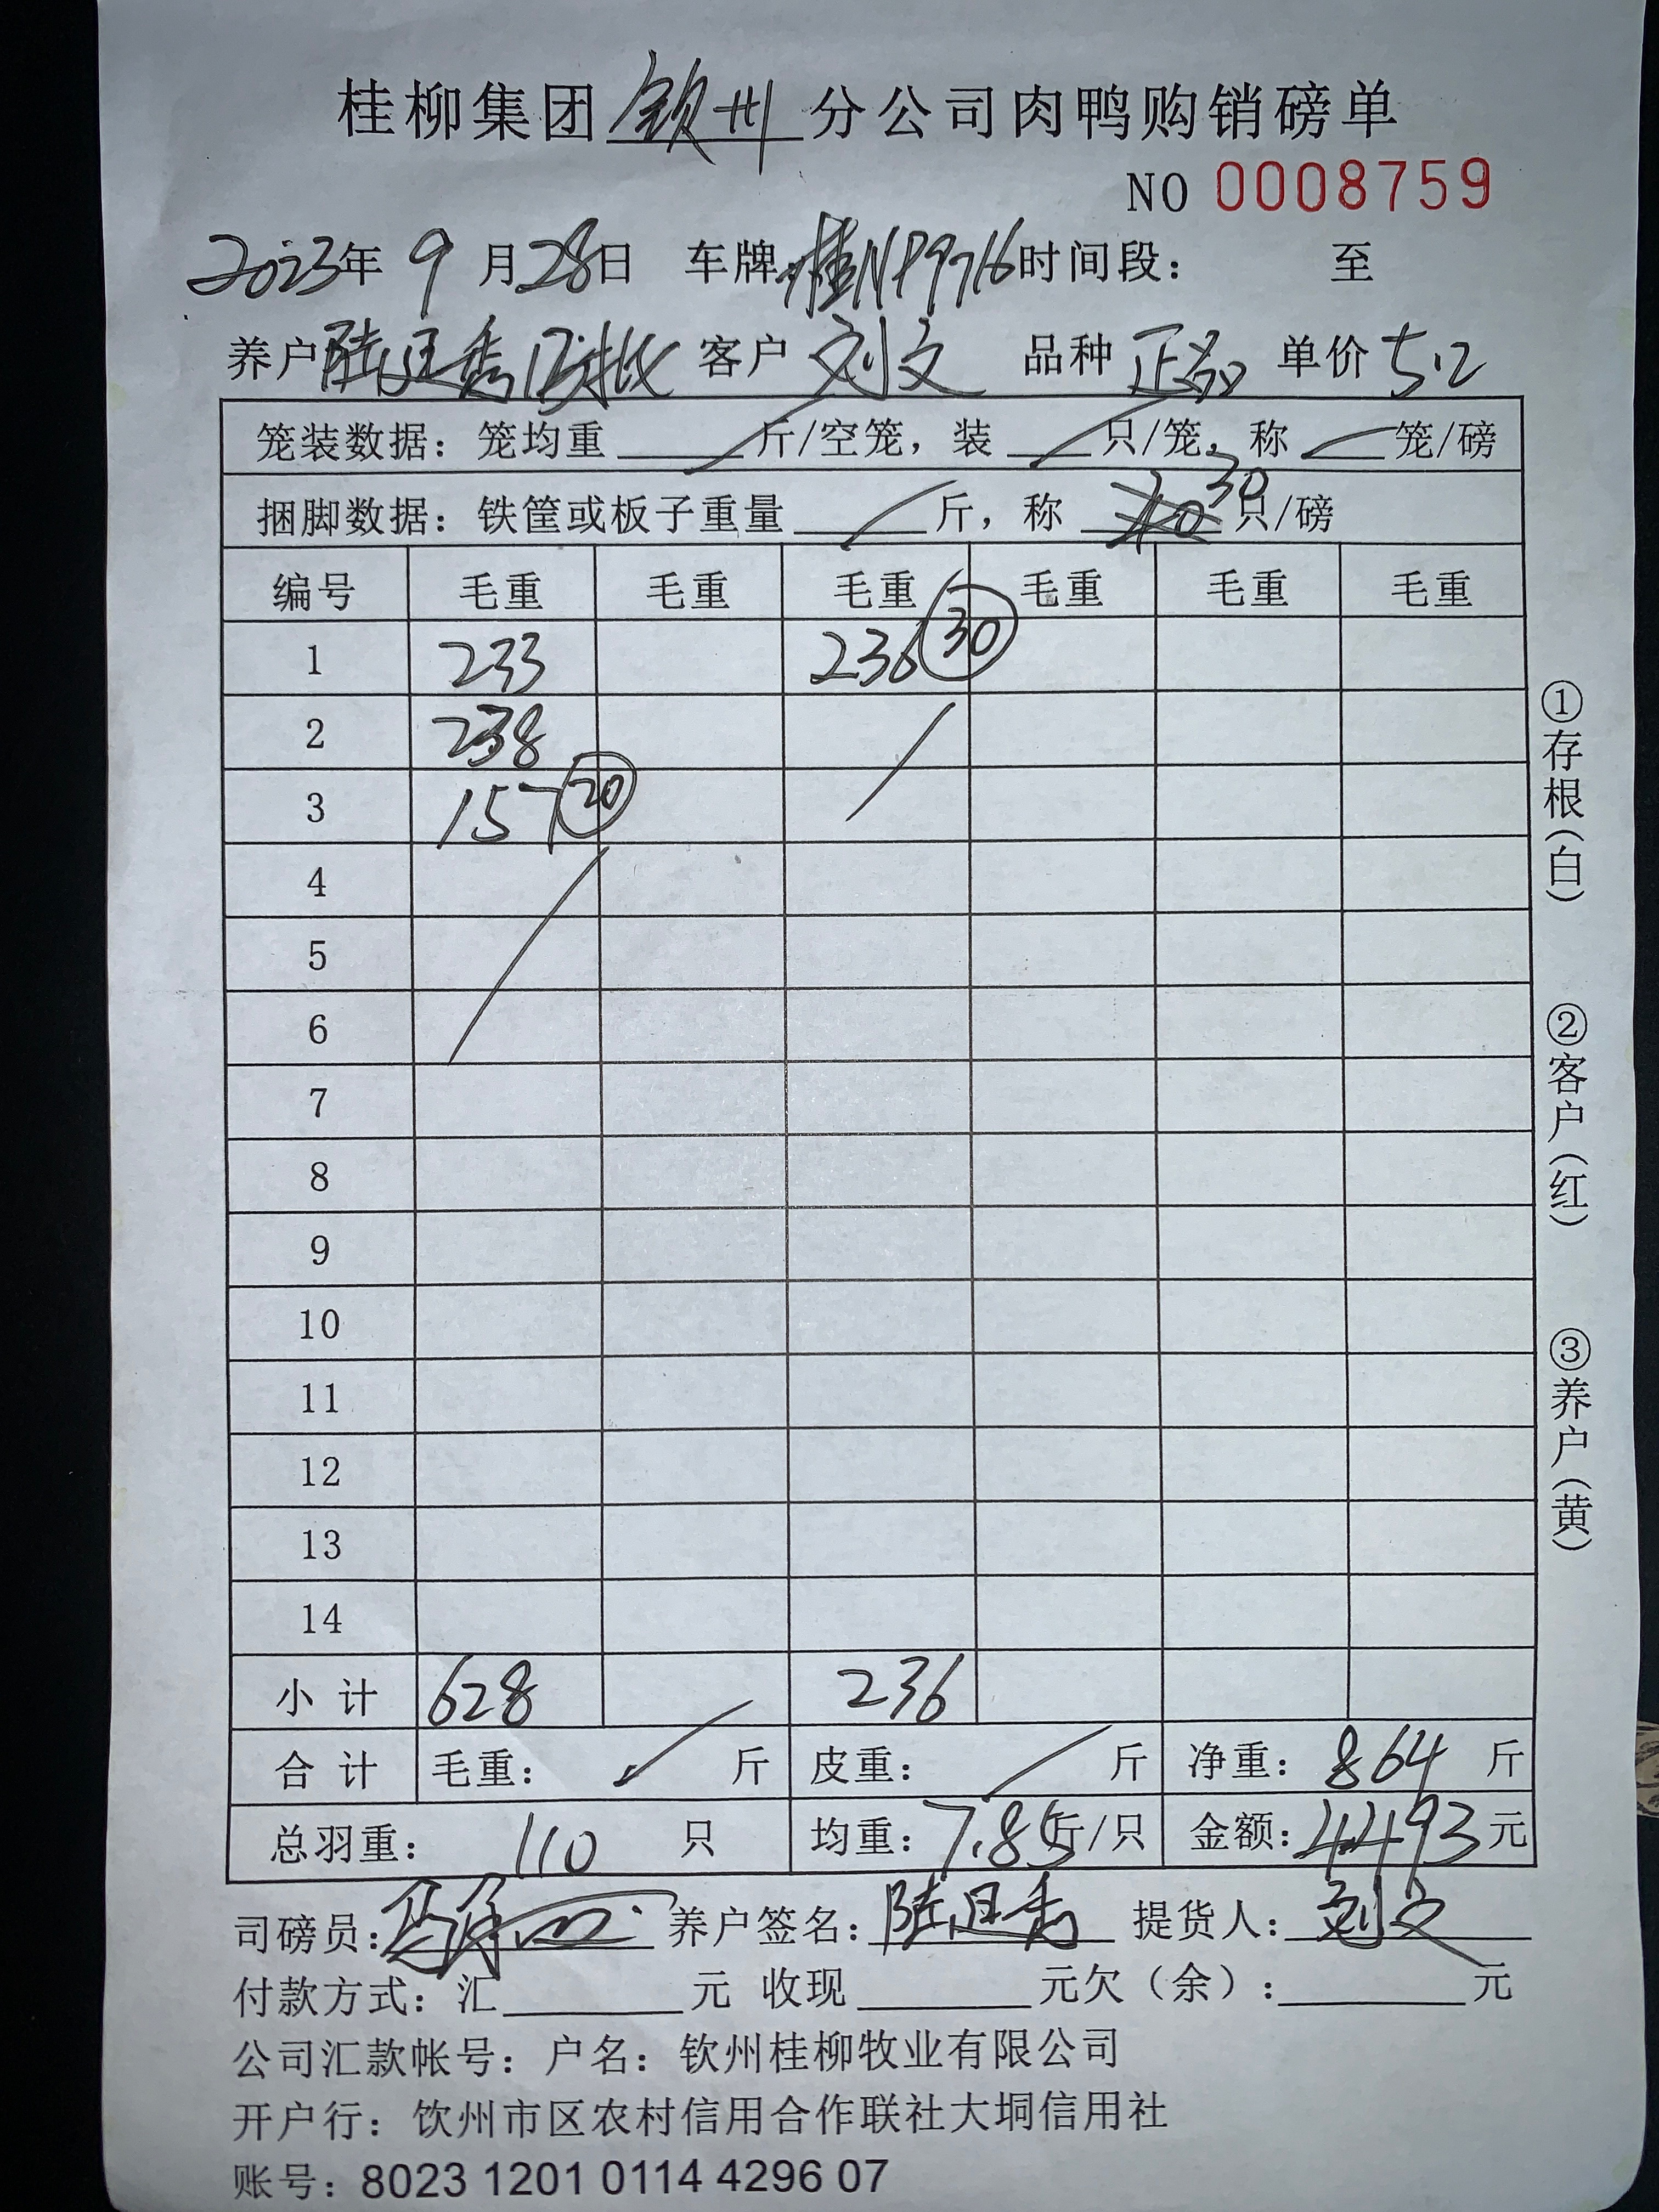 桂柳集团钦州分公司肉鸭购销磅单
NO 0008759
2023年 9 月 28日 车牌:桂NP9716 时间段: 至
养户 陆廷秀 批 客户 刘文 品种 正品 单价 5.2
笼装数据:笼均重 斤/空笼,装 只/笼,称 笼/磅
捆脚数据:铁筐或板子重量 斤,称 30 只/磅
编号 毛重 毛重 毛重 毛重 毛重 毛重
1 233 236 30
2 238
3 157 20
4
5
6
7
8
9
10
11
12
13
14
小计 628 236
合计 毛重: 斤 皮重: 斤 净重: 864 斤
总羽重: 110 只 均重: 7.85斤/只 金额: 4493元
司磅员: 养户签名: 陆廷秀 提货人: 刘文
付款方式:汇 元 收现 元欠(余): 元
公司汇款帐号:户名:钦州桂柳牧业有限公司
开户行:饮州市区农村信用合作联社大垌信用社
账号:8023 1201 0114 4296 07
①存根(白)
②客户(红)
③养户(黄)